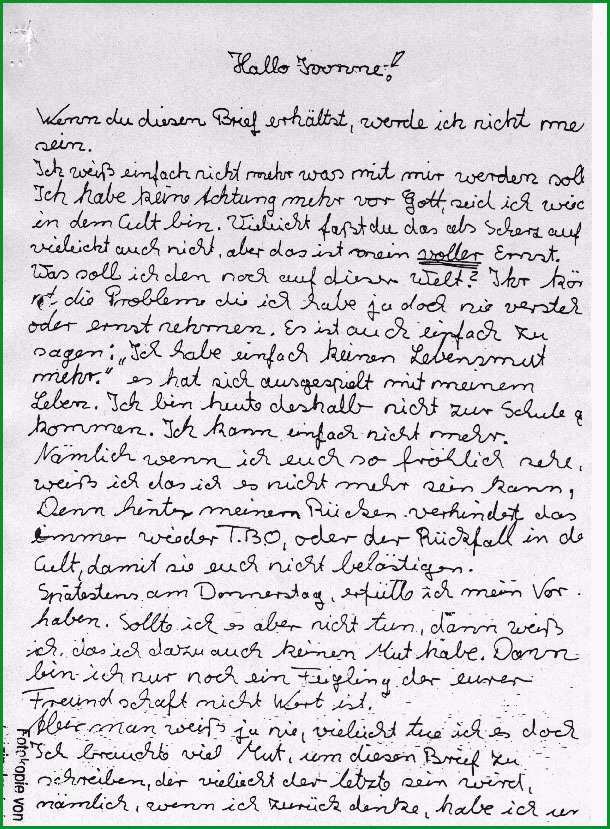 Hallo Ivonne!
Wenn du diesen Brief erhältst, werde ich nicht me
sein.
Ich weiß einfach nicht mehr was mit mir werden soll
Ich habe keine Achtung mehr vor Gott, seid ich wied
in dem Cult bin. Vieleicht faßt du das als Scherz auf
vieleicht auch nicht, aber das ist mein voller Ernst.
Was soll ich den noch auf dieser Welt? Ihr kön
nt die Probleme die ich habe ja doch nie versteh
oder ernst nehmen. Es ist auch einfach zu
sagen: „Ich habe einfach keinen Lebensmut
mehr." es hat sich ausgespielt mit meinem
Leben. Ich bin heute deshalb nicht zur Schule g
kommen. Ich kann einfach nicht mehr.
Nämlich wenn ich euch so fröhlich sehe,
weiß ich das ich es nicht mehr sein kann,
Denn hinter meinem Rücken verhindert das
immer wieder T.BO, oder der Rückfall in de
Cult, damit sie euch nicht belästigen.
Spätestens am Donnerstag, erfülle ich mein Vor
haben. Sollte ich es aber nicht tun, dann weiß
ich, das ich dazu auch keinen Mut habe. Dann
bin ich nur noch ein Feigling der eurer
Freundschaft nicht Wert ist.
Aber man weiß ja nie, vieleicht tue ich es doch
Ich brauchte viel Mut, um diesen Brief zu
schreiben, der vieliecht der letzte sein wird,
nämlich, wenn ich zurück denke, habe ich un
Fotokopie von